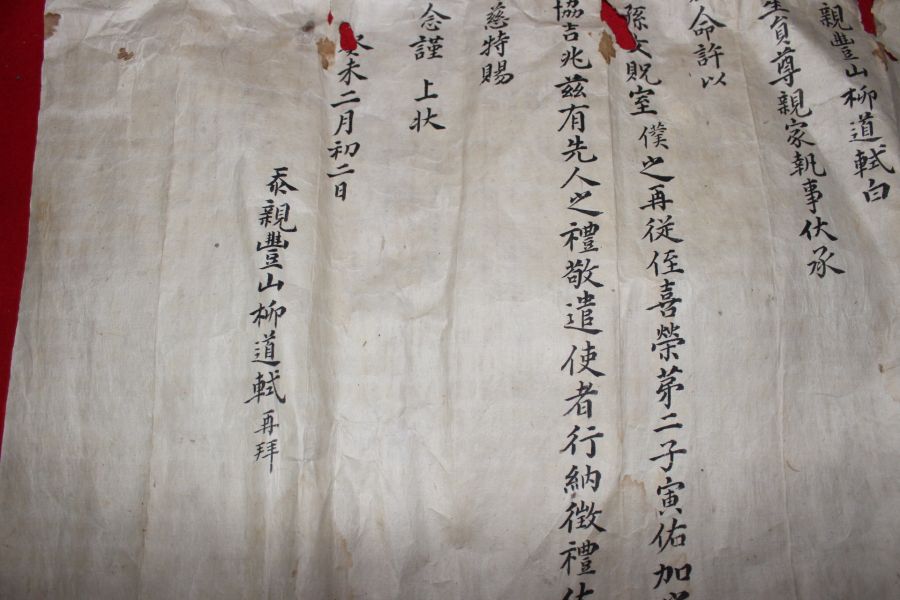 親豐山柳道軾白
生員尊親家執事伏承
命許以
孫女貺室僕之再從侄喜榮第二子寅佑加
協吉兆茲有先人之禮敬遣使者行納徵禮伏
慈特賜
念謹 上狀
癸未二月初二日
忝親豐山柳道軾再拜